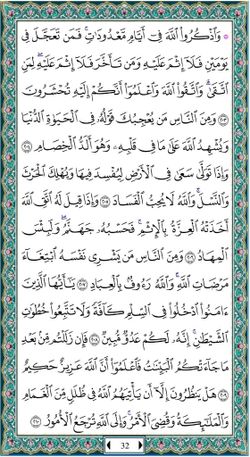 ۞ وَٱذْكُرُوا۟ ٱللَّهَ فِىٓ أَيَّامٍ مَّعْدُودَٰتٍ ۚ فَمَن تَعَجَّلَ فِى
يَوْمَيْنِ فَلَآ إِثْمَ عَلَيْهِ وَمَن تَأَخَّرَ فَلَآ إِثْمَ عَلَيْهِ ۚ لِمَنِ
ٱتَّقَىٰ ۗ وَٱتَّقُوا۟ ٱللَّهَ وَٱعْلَمُوٓا۟ أَنَّكُمْ إِلَيْهِ تُحْشَرُونَ
٢٠٣ وَمِنَ ٱلنَّاسِ مَن يُعْجِبُكَ قَوْلُهُۥ فِى ٱلْحَيَوٰةِ ٱلدُّنْيَا
وَيُشْهِدُ ٱللَّهَ عَلَىٰ مَا فِى قَلْبِهِۦ وَهُوَ أَلَدُّ ٱلْخِصَامِ ٢٠٤
وَإِذَا تَوَلَّىٰ سَعَىٰ فِى ٱلْأَرْضِ لِيُفْسِدَ فِيهَا وَيُهْلِكَ ٱلْحَرْثَ
وَٱلنَّسْلَ ۗ وَٱللَّهُ لَا يُحِبُّ ٱلْفَسَادَ ٢٠٥ وَإِذَا قِيلَ لَهُ ٱتَّقِ ٱللَّهَ
أَخَذَتْهُ ٱلْعِزَّةُ بِٱلْإِثْمِ ۚ فَحَسْبُهُۥ جَهَنَّمُ ۚ وَلَبِئْسَ
ٱلْمِهَادُ ٢٠٦ وَمِنَ ٱلنَّاسِ مَن يَشْرِى نَفْسَهُ ٱبْتِغَآءَ
مَرْضَاتِ ٱللَّهِ ۗ وَٱللَّهُ رَءُوفٌۢ بِٱلْعِبَادِ ٢٠٧ يَٰٓأَيُّهَا ٱلَّذِينَ
ءَامَنُوا۟ ٱدْخُلُوا۟ فِى ٱلسِّلْمِ كَآفَّةً وَلَا تَتَّبِعُوا۟ خُطُوَٰتِ
ٱلشَّيْطَٰنِ ۚ إِنَّهُۥ لَكُمْ عَدُوٌّ مُّبِينٌ ٢٠٨ فَإِن زَلَلْتُم مِّنۢ بَعْدِ
مَا جَآءَتْكُمُ ٱلْبَيِّنَٰتُ فَٱعْلَمُوٓا۟ أَنَّ ٱللَّهَ عَزِيزٌ حَكِيمٌ
٢٠٩ هَلْ يَنظُرُونَ إِلَّآ أَن يَأْتِيَهُمُ ٱللَّهُ فِى ظُلَلٍ مِّنَ ٱلْغَمَامِ
وَٱلْمَلَٰٓئِكَةُ وَقُضِىَ ٱلْأَمْرُ ۚ وَإِلَى ٱللَّهِ تُرْجَعُ ٱلْأُمُورُ ٢١٠
32